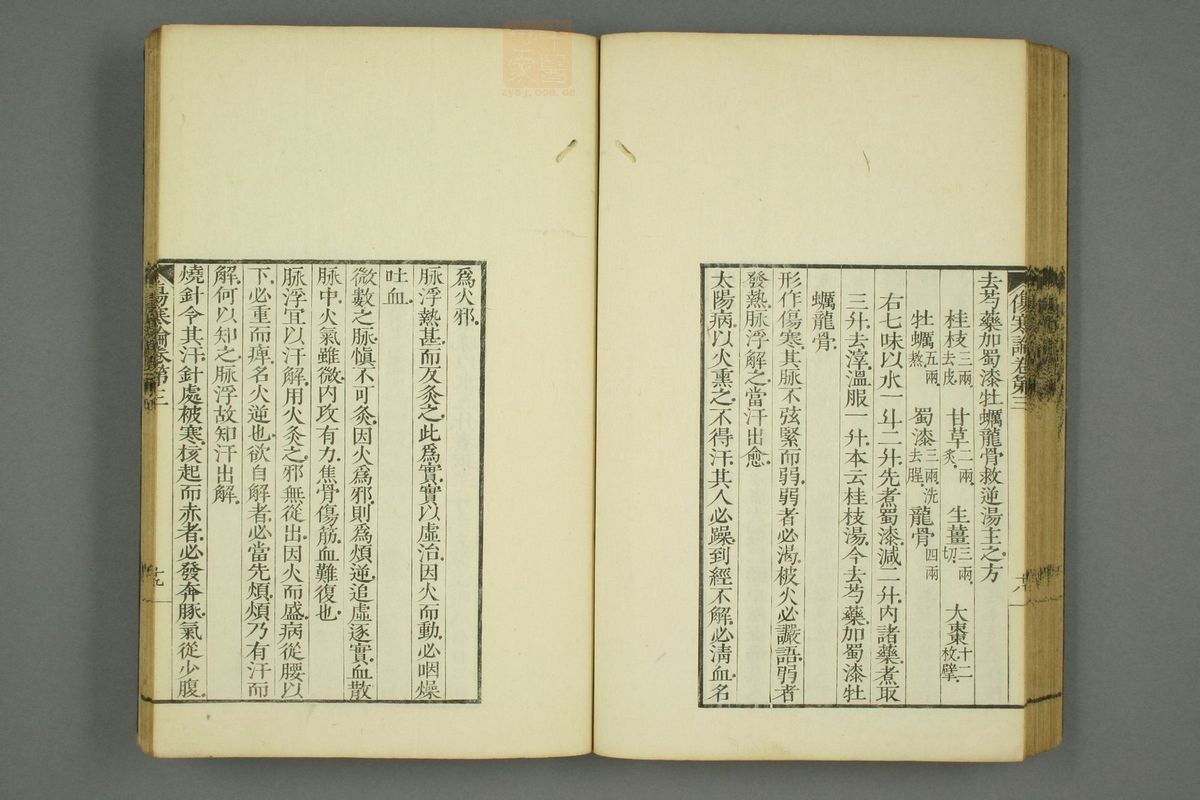 傷寒論卷第三
去芍藥加蜀漆牡蠣龍骨救逆湯主之方
桂枝三兩去皮 甘草二兩炙 生薑三兩切 大棗十二枚擘
牡蠣五兩熬 蜀漆三兩洗去腥 龍骨四兩
右七味以水一斗二升先煮蜀漆減二升內諸藥煮取
三升去滓溫服一升本云桂枝湯今去芍藥加蜀漆牡
蠣龍骨
形作傷寒其脈不弦緊而弱弱者必渴被火必讝語弱者
發熱脈浮解之當汗出愈
太陽病以火熏之不得汗其人必躁到經不解必清血名
十八
爲火邪
脉浮熱甚而反灸之此爲實實以虛治因火而動必咽燥
吐血
微數之脉慎不可灸因火爲邪則爲煩逆追虛逐實血散
脉中火氣雖微內攻有力焦骨傷筋血難復也
脉浮宜以汗解用火灸之邪無從出因火而盛病從腰以
下必重而痺名火逆也欲自解者必當先煩煩乃有汗而
解何以知之脉浮故知汗出解
燒針令其汗針處被寒核起而赤者必發奔豚氣從少腹
傷寒論卷第三
十九
zysj.com.cn